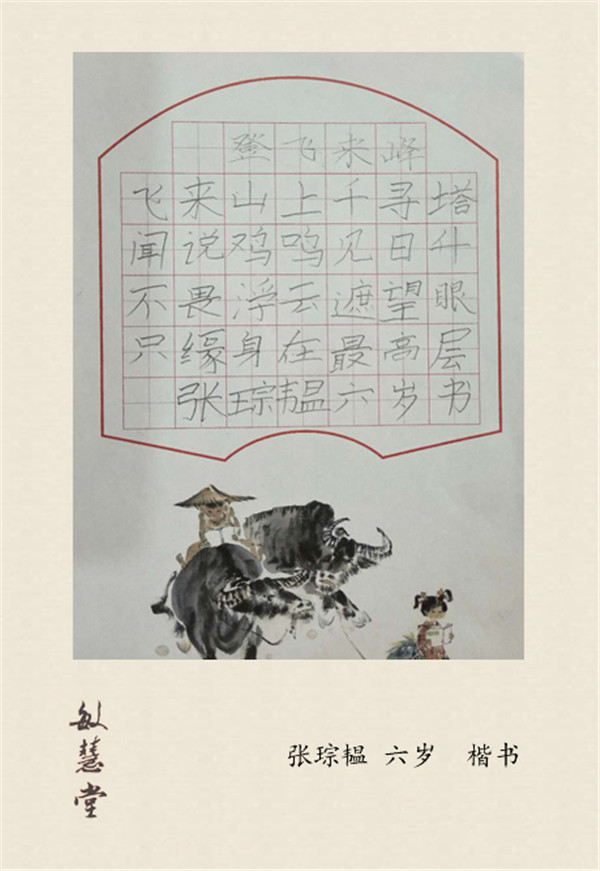 登飞来峰
飞来山上千寻塔
闻说鸡鸣见日升
不畏浮云遮望眼
只缘身在最高层
张琮韫六岁书
敏慧堂
张琮韫 六岁 楷书